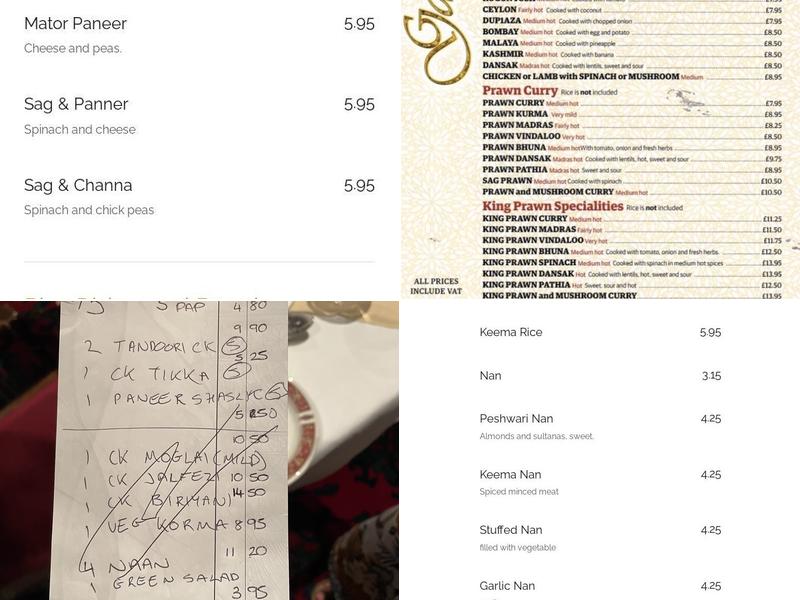 Mator Paneer 5.95
Cheese and peas.
Sag & Panner 5.95
Spinach and cheese
Sag & Channa 5.95
Spinach and chick peas
CEYLON Fairly hot Cooked with coconut £7.95
DUPIAZA Medium hot Cooked with chopped onion £7.95
BOMBAY Medium hot Cooked with egg and potato £8.50
MALAYA Medium hot Cooked with pineapple £8.50
KASHMIR Medium hot Cooked with banana £8.50
DANSAK Madras hot Cooked with lentils, sweet and sour £8.50
CHICKEN or LAMB with SPINACH or MUSHROOM Medium £8.95
Prawn Curry Rice is not included
PRAWN CURRY Medium hot £7.95
PRAWN KURMA Very mild £8.95
PRAWN MADRAS Fairly hot £8.25
PRAWN VINDALOO Very hot £8.50
PRAWN BHUNA Medium hot With tomato, onion and fresh herbs £8.95
PRAWN DANSAK Madras hot Cooked with lentils, hot, sweet and sour £9.75
PRAWN PATHIA Madras hot Sweet and sour £8.95
SAG PRAWN Medium hot Cooked with spinach £10.50
PRAWN and MUSHROOM CURRY Medium hot £10.50
King Prawn Specialities Rice is not included
KING PRAWN CURRY Medium hot £11.25
KING PRAWN MADRAS Fairly hot £11.50
KING PRAWN VINDALOO Very hot £11.75
KING PRAWN BHUNA Medium hot Cooked with tomato, onion and fresh herbs £12.50
KING PRAWN SPINACH Medium hot Cooked with spinach in medium hot spices £13.95
KING PRAWN DANSAK Hot Cooked with lentils, hot, sweet and sour £13.95
KING PRAWN PATHIA Hot Sweet, sour and hot £12.50
KING PRAWN and MUSHROOM CURRY £13.95
ALL PRICES
INCLUDE VAT
5 PAP 4 80
9 90
2 TANDOORI CK 5
5 25
1 CK TIKKA 5
1 PANEER SHASLYC 5
5 50
10 50
1 CK MOGLAI (MILD)
1 CK JALFEZI 10 50
1 CK BIRIYANI 14 50
1 VEG KORMA 8 95
11 20
4 NAAN
1 GREEN SALAD
3 95
Keema Rice 5.95
Nan 3.15
Peshwari Nan 4.25
Almonds and sultanas, sweet.
Keema Nan 4.25
Spiced minced meat
Stuffed Nan 4.25
filled with vegetable
Garlic Nan 4.25